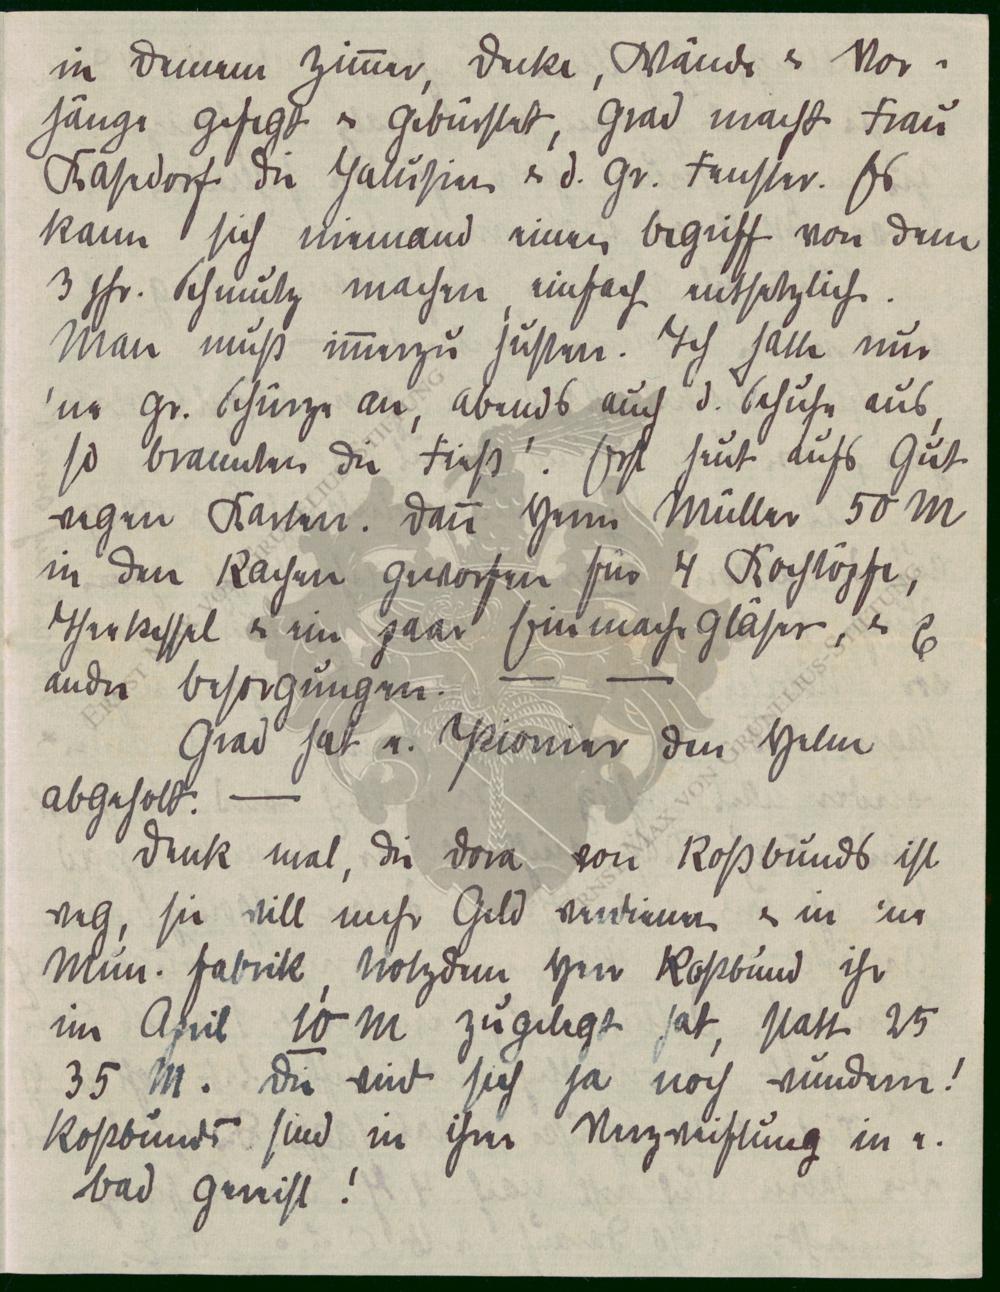 in Deinem Zim̅er, Decke, Wände & Vor-
hänge gefegt & gebürstet, Grad macht Frau
Kasedorf die Jalusien & d. gr. Fenster. Es
kann sich niemand einen begriff von dem
3 jhr. Schmutz machen, einfach entsetzlich.
Man muß im̅erzu husten. Ich hatte nur
'ne gr. Schürze an, abends auch d. Schuhe aus,
so brannten die Fieß'. Erst heut aufs Gut
wegen Karten. Dan̅ Herrn Müller 50 M
in den Rachen geworfen für 4 Kochtöpfe,
Theekessel & ein paar Einmache Gläser, &
andre besorgungen. — —
Grad hat e. Pionier den Helm
abgeholt. —
Denk mal, die Dora von Roßbunds ist
weg, sie will mehr Geld verdienen & in 'ne
Mun. fabrik, trotzdem Herr Roßbund ihr
im April 10 M zugelegt hat, statt 25
35 M. Die wird sich ja noch wundern!
Roßbunds sind in ihrer Verzweiflung in e.
bad gereist!
ERNST MAX VON GRUNELIUS-STIFTUNG
ERNST MAX VON GRUNELIUS-STIFTUNG